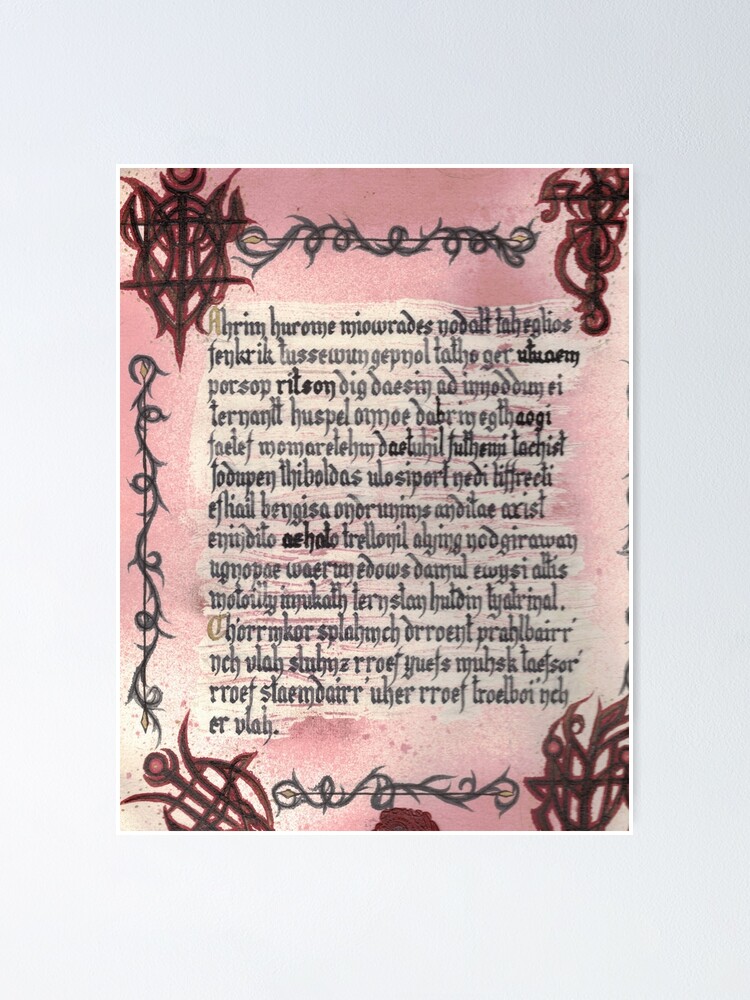 Ahrim hurome miowrades nodalt tah eglios
fenkrik tussewungepnol taths ger utuaem
porsop ritson dig daesin ad innoddun ei
ternantt huspel onnoe dabrin egthaogi
faelef momarelehm daeluhil futhenn tachist
fodupen thiboldas ulosiport nedi tiffrecti
eshail bengisa ondrunins anditae axist
enindito aehalo trellonil alying nodgirawan
ugnopae waerun edows damul ewysi altis
motoilly imukath ternslan huldin tyatrinal.
Thorrnkor splahinch drroent prahlbairr'
nch vlah sluhnz rroef yuefs muhsk taefsor'
rroef staemdairr' uher rroef troelboi'nch
er vlah.